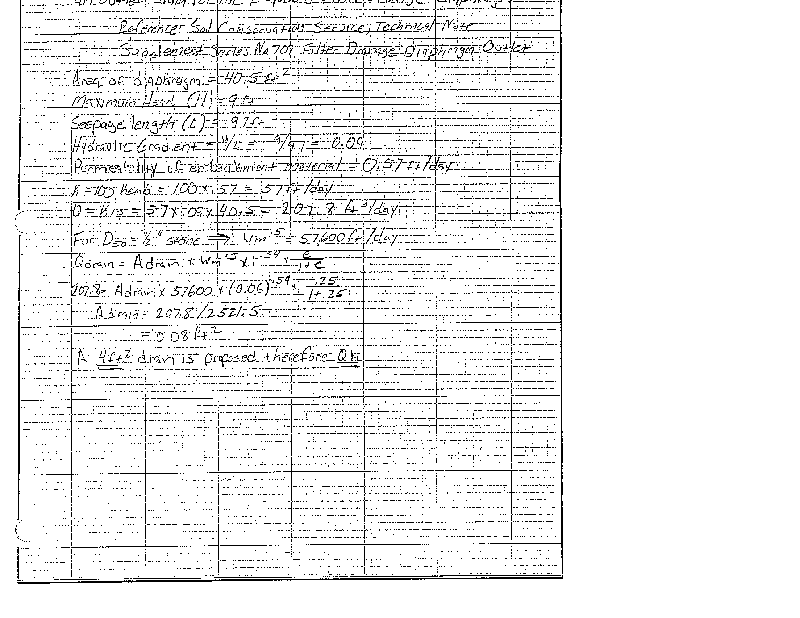 Reference: Soil Conservation Service, Technical Note
Supplement Series No 709, Filter Drainage Diaphragm Outlet
Area of diaphragm = 40.5 ft²
Maximum Head (H) = 9 ft
Seepage length (L) = 97 ft
Hydraulic Gradient = H/L = 9/97 = 0.09
Permeability of embankment material = 0.57 ft/day
K = 100 kemb = 100 x .57 = 57 ft/day
Q = kis = 57 x .09 x 40.5 = 207.8 ft³/day
For D50 = ½" stone ⇒ Wm^.5 = 57600 ft/day
Qdrain = Adrain x Wm^.5 x i^.54 x e/1+e
207.8 = Adrain x 57600 x (0.06)^.54 x .25/1+.25
Adrain = 207.8/2521.5
= 0.08 ft²
A 4ft² drain is proposed therefore OK